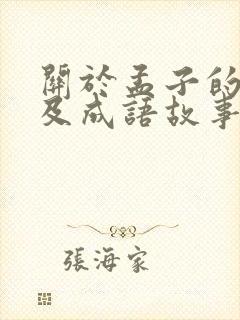 關於孟子的
及成語故事
張海家